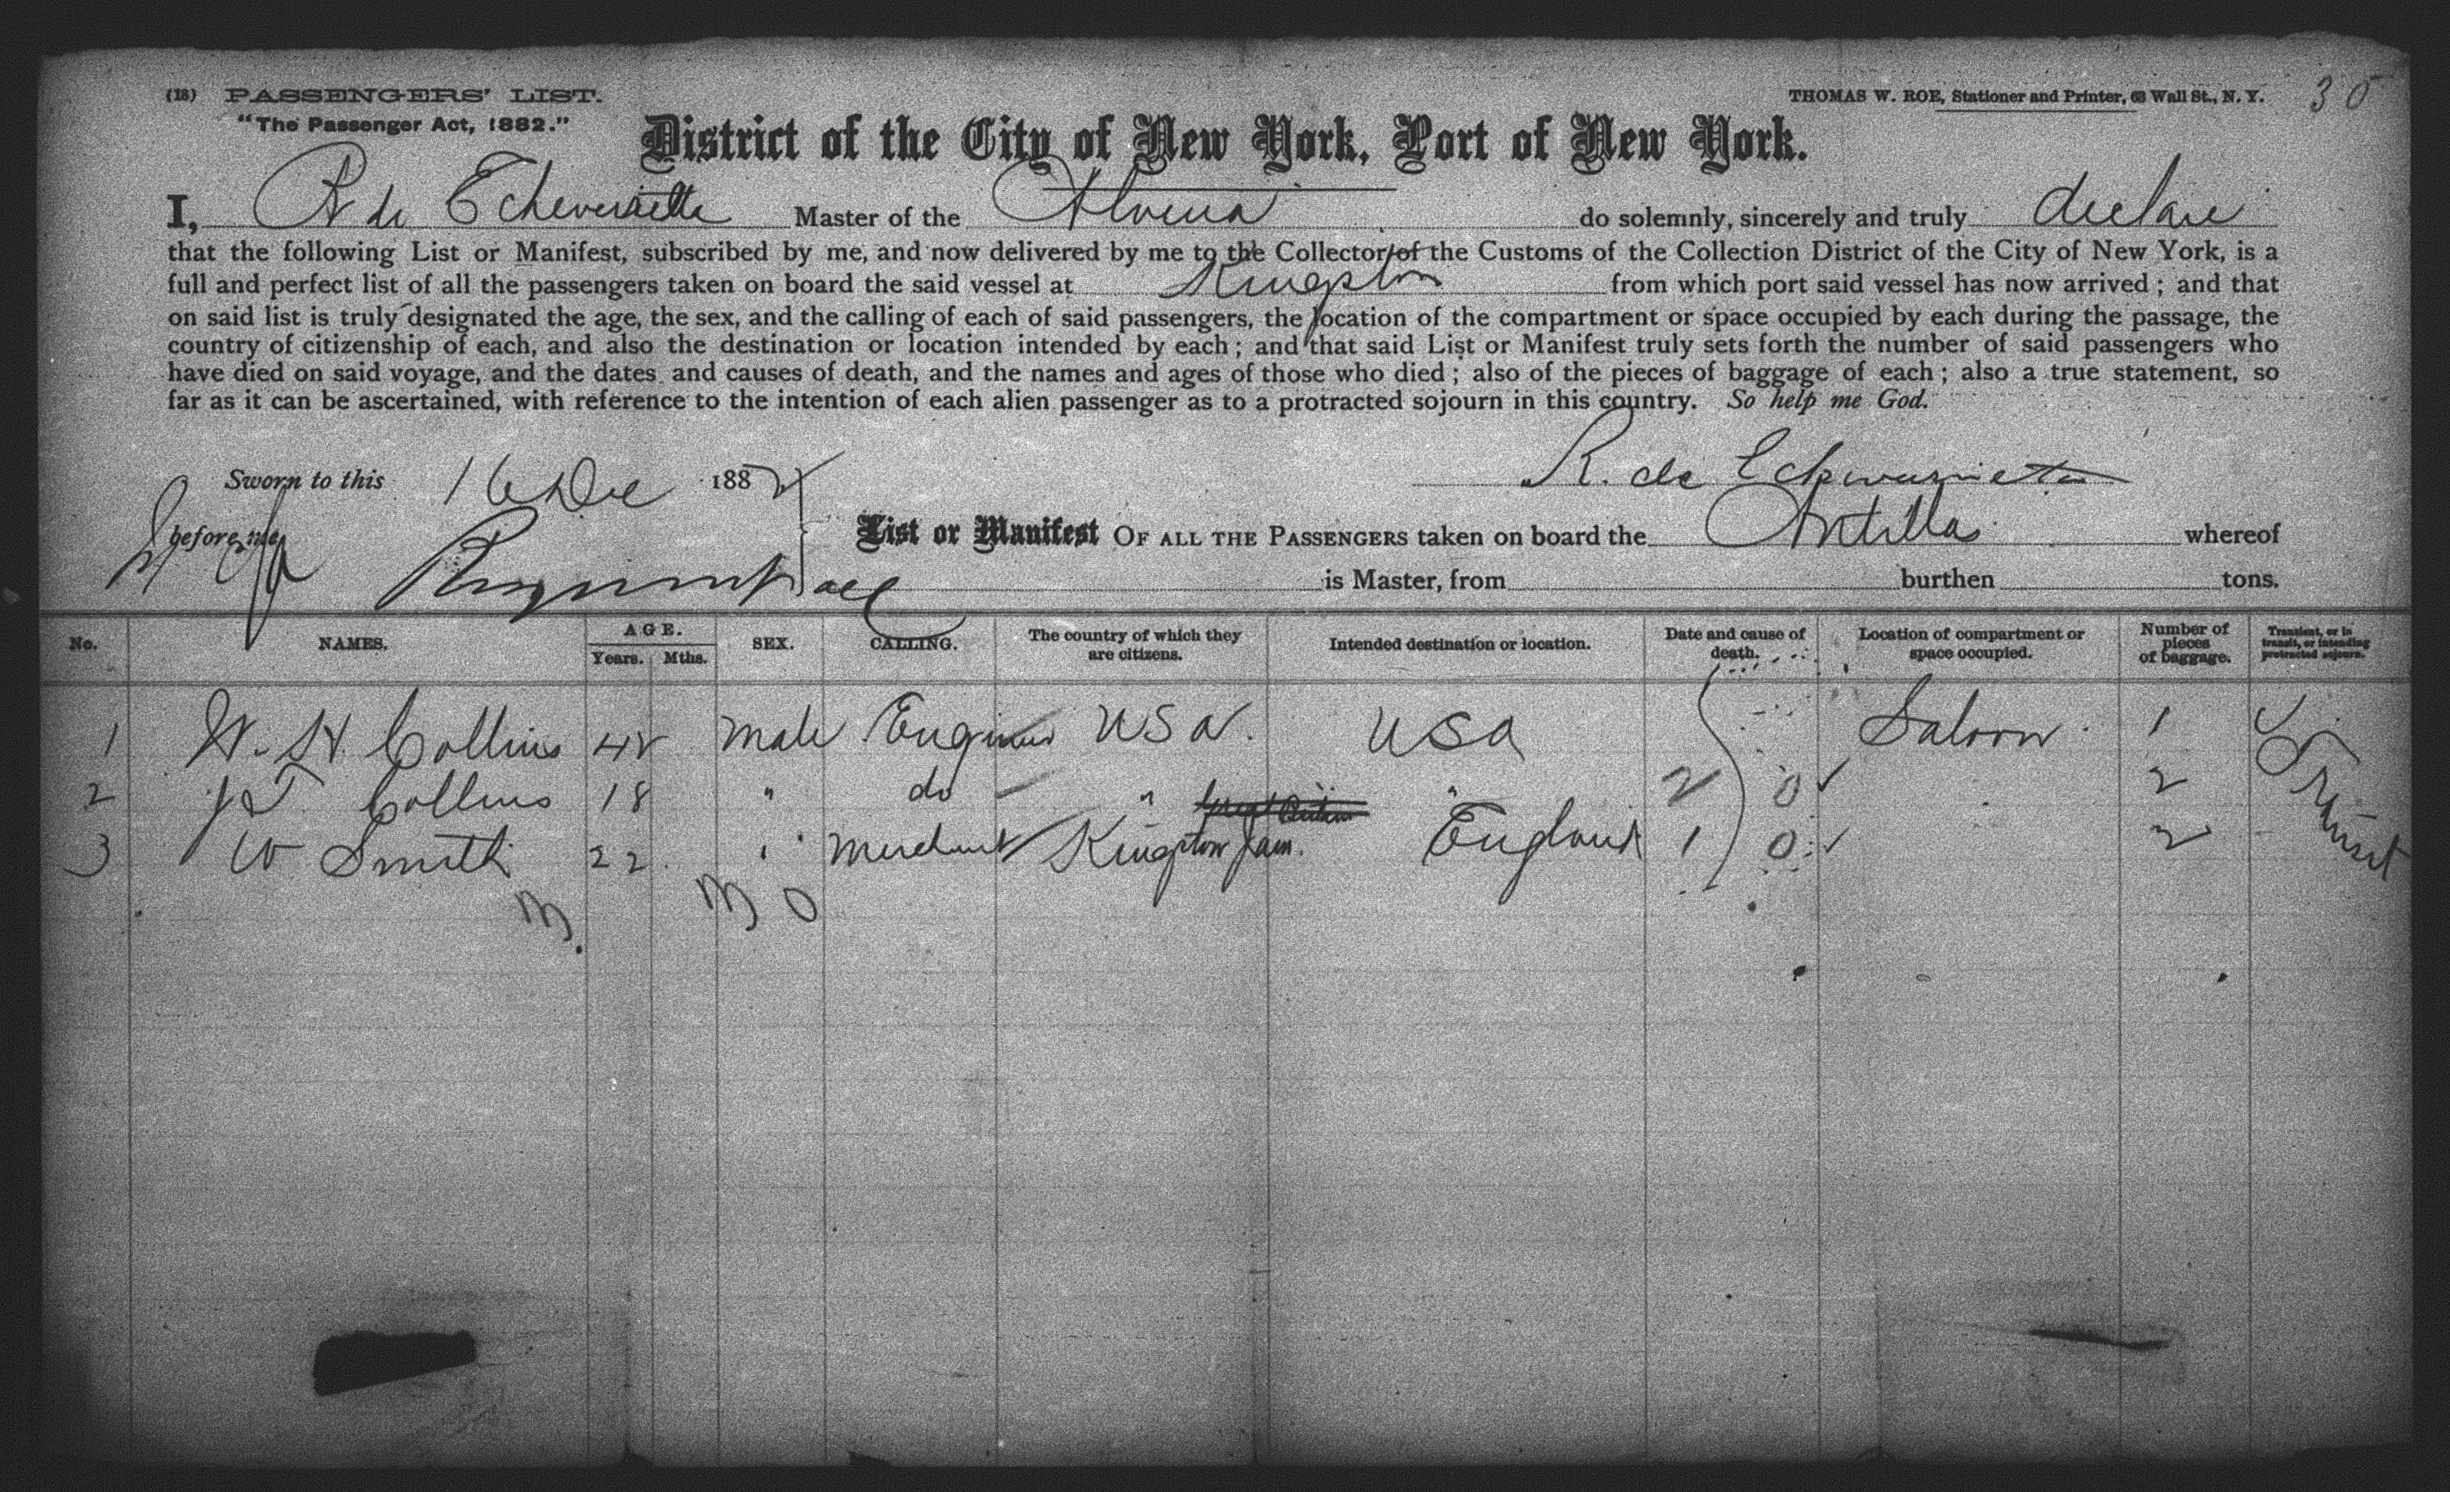 (18) PASSENGERS' LIST.
"The Passenger Act, 1882."
THOMAS W. ROE, Stationer and Printer, 63 Wall St., N. Y. 30
District of the City of New York, Port of New York.
I, R de Echeverriette Master of the Alvena do solemnly, sincerely and truly declare
that the following List or Manifest, subscribed by me, and now delivered by me to the Collector of the Customs of the Collection District of the City of New York, is a
full and perfect list of all the passengers taken on board the said vessel at Kingston from which port said vessel has now arrived; and that
on said list is truly designated the age, the sex, and the calling of each of said passengers, the location of the compartment or space occupied by each during the passage, the
country of citizenship of each, and also the destination or location intended by each; and that said List or Manifest truly sets forth the number of said passengers who
have died on said voyage, and the dates and causes of death, and the names and ages of those who died; also of the pieces of baggage of each; also a true statement, so
far as it can be ascertained, with reference to the intention of each alien passenger as to a protracted sojourn in this country. So help me God.
Sworn to this 16 Dec 188 R. de
before me
List or Manifest OF ALL THE PASSENGERS taken on board the Antilla whereof
is Master, from burthen tons.
No. NAMES. AGE. Years. Mths. SEX. CALLING. The country of which they are citizens. Intended destination or location. Date and cause of death. Location of compartment or space occupied. Number of pieces of baggage. Transient, or in transit, or intending protracted sojourn.
1 W. H. Collins 42 male Engineer USA. USA Saloon 1
2 J T. Collins 18 " do " " 2 0 2 Transit
3 W Smith 22 " merchant Kingston Jam. England 1 0 2
3 3 0